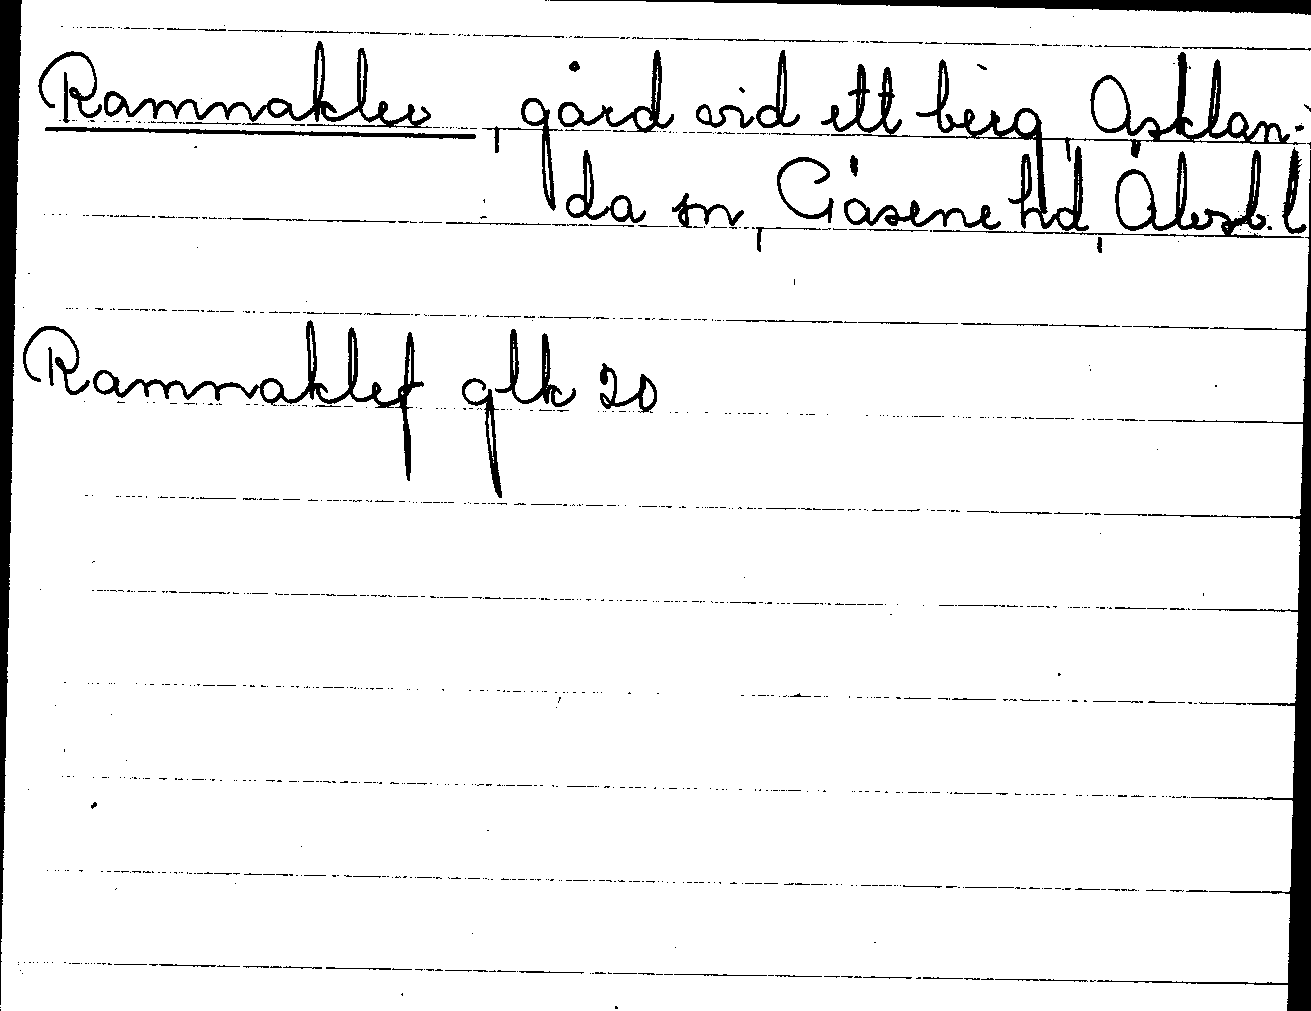 Ramnaklev, gård vid ett berg, Asklan-
da sn, Gäsene hd, Älvsb. l
Ramnaklef glk 20